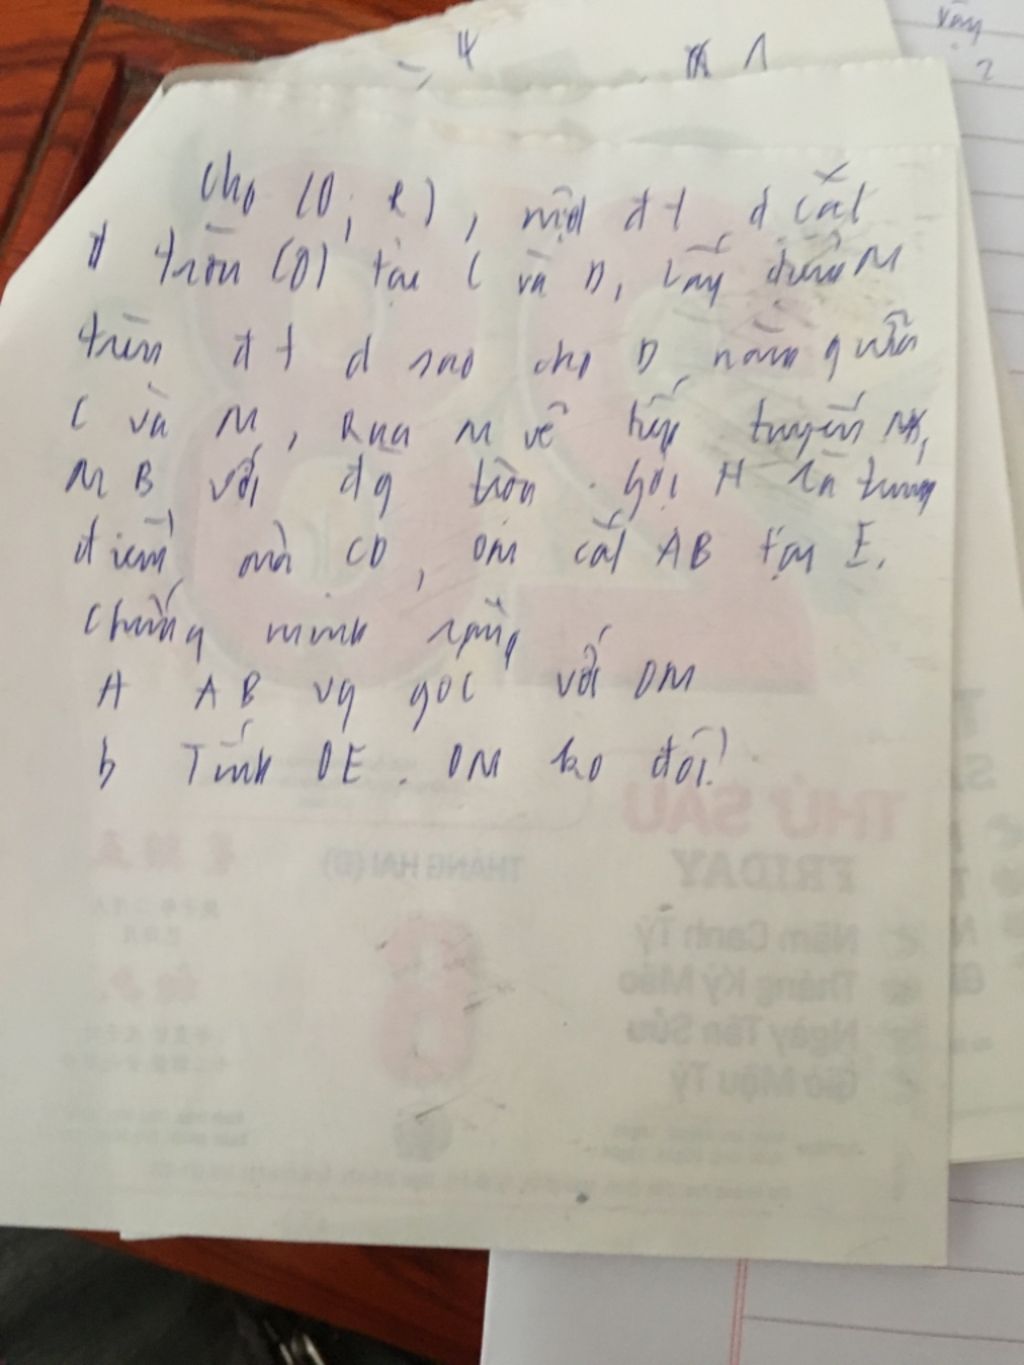 vậy
?
Cho (O; R), một đt d cắt
đ tròn (O) tại C và D, Lấy điểm M
trên đt d sao cho D nằm giữa
C và M, Qua M vẽ tiếp tuyến MA,
MB với đg tròn. Gọi H là trung
điểm của CD, OM cắt AB tại E.
Chứng minh rằng
A AB vg góc với OM
b Tính OE . OM ko đổi.
THỨ SÁU
FRIDAY
THÁNG HAI (Đ)
Năm Canh Tý
Tháng Kỷ Mão
Ngày Tân Sửu
Giờ Mậu Tý